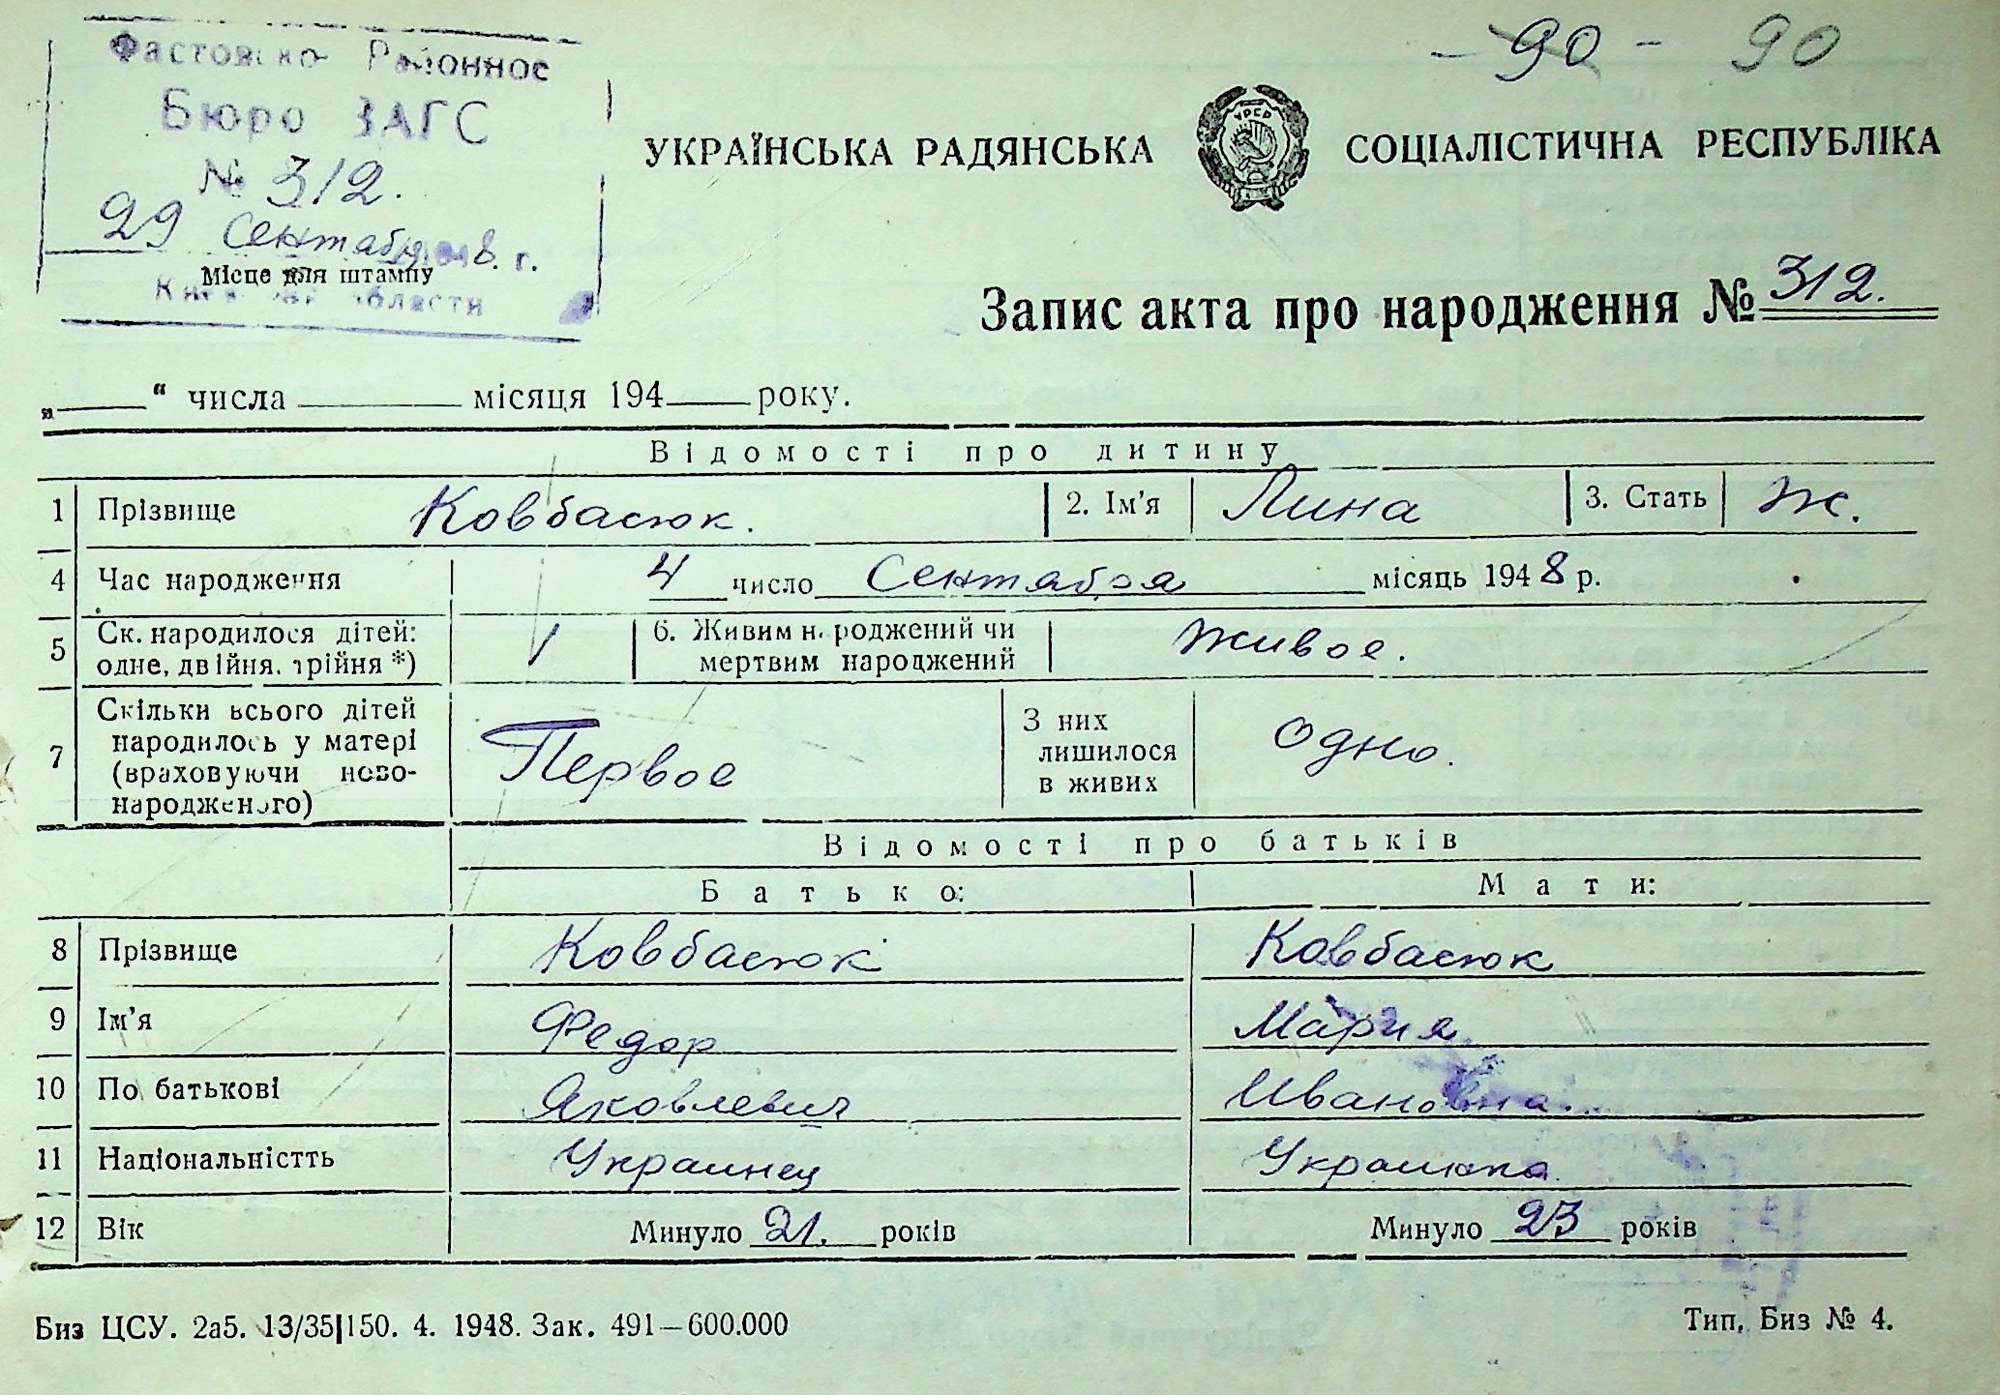 - 90 - 90
Районное
Бюро ЗАГС
№ 312.
29 Сентября 1948. г.
Місце для штампу
области
УКРАЇНСЬКА РАДЯНСЬКА СОЦІАЛІСТИЧНА РЕСПУБЛІКА
УРСР
Запис акта про народження № 312.
„ “ числа місяця 194 року.
Відомості про дитину
1 Прізвище Ковбасюк. 2. Ім'я Лина 3. Стать Ж.
4 Час народження 4 число Сентября місяць 1948 р.
5 Ск. народилося дітей: одне, двійня, трійня *) 1 6. Живим народжений чи мертвим народжений Живое.
7 Скільки всього дітей народилось у матері (враховуючи ново-народженого) Первое З них лишилося в живих Одно.
Відомості про батьків
Батько: Мати:
8 Прізвище Ковбасюк Ковбасюк
9 Ім'я Федор Мария
10 По батькові Яковлевич Ивановна
11 Національністть Украинец Украинка
12 Вік Минуло 21. років Минуло 23 років
Биз ЦСУ. 2а5. 13/35|150. 4. 1948. Зак. 491—600.000 Тип, Биз № 4.